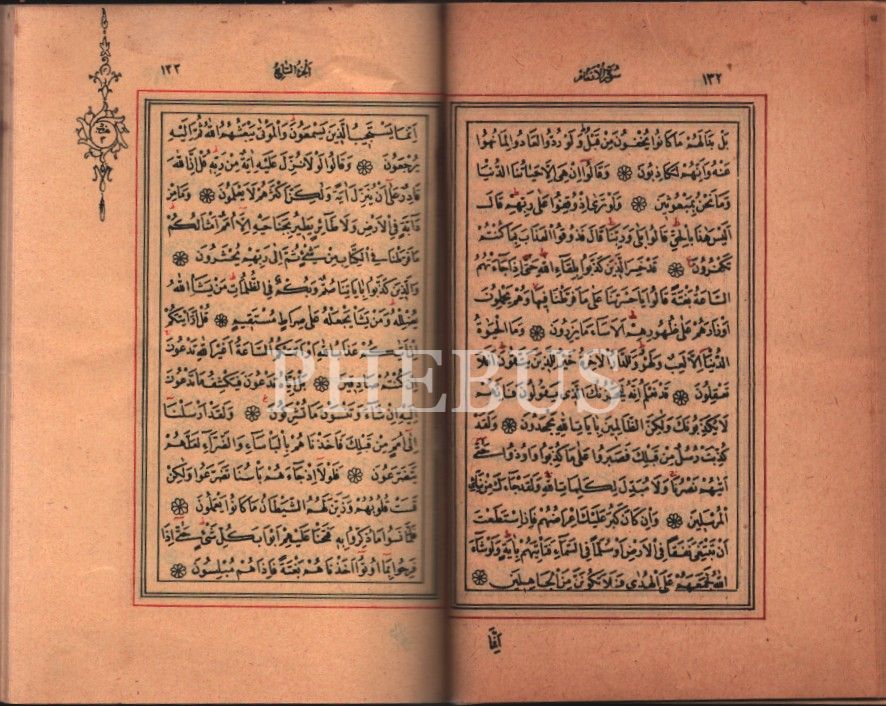 سورة الانعام ١٣٢
بَلْ بَدَا لَهُمْ مَا كَانُوا يُخْفُونَ مِنْ قَبْلُ وَلَوْ رُدُّوا لَعَادُوا لِمَا نُهُوا
عَنْهُ وَاِنَّهُمْ لَكَاذِبُونَ ۝ وَقَالُوا اِنْ هِيَ اِلَّا حَيَاتُنَا الدُّنْيَا
وَمَا نَحْنُ بِمَبْعُوثِينَ ۝ وَلَوْ تَرٰى اِذْ وُقِفُوا عَلٰى رَبِّهِمْ قَالَ
اَلَيْسَ هٰذَا بِالْحَقِّ قَالُوا بَلٰى وَرَبِّنَا قَالَ فَذُوقُوا الْعَذَابَ بِمَا كُنْتُمْ
تَكْفُرُونَ ۝ قَدْ خَسِرَ الَّذِينَ كَذَّبُوا بِلِقَاءِ اللّٰهِ حَتّٰى اِذَا جَاءَتْهُمُ
السَّاعَةُ بَغْتَةً قَالُوا يَا حَسْرَتَنَا عَلٰى مَا فَرَّطْنَا فِيهَا وَهُمْ يَحْمِلُونَ
اَوْزَارَهُمْ عَلٰى ظُهُورِهِمْ اَلَا سَاءَ مَا يَزِرُونَ ۝ وَمَا الْحَيٰوةُ
الدُّنْيَا اِلَّا لَعِبٌ وَلَهْوٌ وَلَلدَّارُ الْاٰخِرَةُ خَيْرٌ لِلَّذِينَ يَتَّقُونَ اَفَلَا
تَعْقِلُونَ ۝ قَدْ نَعْلَمُ اِنَّهُ لَيَحْزُنُكَ الَّذِي يَقُولُونَ فَاِنَّهُمْ
لَا يُكَذِّبُونَكَ وَلٰكِنَّ الظَّالِمِينَ بِاٰيَاتِ اللّٰهِ يَجْحَدُونَ ۝ وَلَقَدْ
كُذِّبَتْ رُسُلٌ مِنْ قَبْلِكَ فَصَبَرُوا عَلٰى مَا كُذِّبُوا وَاُوذُوا حَتّٰى
اَتٰيهُمْ نَصْرُنَا وَلَا مُبَدِّلَ لِكَلِمَاتِ اللّٰهِ وَلَقَدْ جَاءَكَ مِنْ نَبَائِ
الْمُرْسَلِينَ ۝ وَاِنْ كَانَ كَبُرَ عَلَيْكَ اِعْرَاضُهُمْ فَاِنِ اسْتَطَعْتَ
اَنْ تَبْتَغِيَ نَفَقًا فِي الْاَرْضِ اَوْ سُلَّمًا فِي السَّمَاءِ فَتَأْتِيَهُمْ بِاٰيَةٍ وَلَوْ شَاءَ
اللّٰهُ لَجَمَعَهُمْ عَلَى الْهُدٰى فَلَا تَكُونَنَّ مِنَ الْجَاهِلِينَ ۝
اِنَّمَا
الجزء السابع ١٣٣
حزب ٣
اِنَّمَا يَسْتَجِيبُ الَّذِينَ يَسْمَعُونَ وَالْمَوْتٰى يَبْعَثُهُمُ اللّٰهُ ثُمَّ اِلَيْهِ
يُرْجَعُونَ ۝ وَقَالُوا لَوْلَا نُزِّلَ عَلَيْهِ اٰيَةٌ مِنْ رَبِّهِ قُلْ اِنَّ اللّٰهَ
قَادِرٌ عَلٰى اَنْ يُنَزِّلَ اٰيَةً وَلٰكِنَّ اَكْثَرَهُمْ لَا يَعْلَمُونَ ۝ وَمَا مِنْ
دَابَّةٍ فِي الْاَرْضِ وَلَا طَائِرٍ يَطِيرُ بِجَنَاحَيْهِ اِلَّا اُمَمٌ اَمْثَالُكُمْ
مَا فَرَّطْنَا فِي الْكِتَابِ مِنْ شَيْءٍ ثُمَّ اِلٰى رَبِّهِمْ يُحْشَرُونَ ۝
وَالَّذِينَ كَذَّبُوا بِاٰيَاتِنَا صُمٌّ وَبُكْمٌ فِي الظُّلُمَاتِ مَنْ يَشَاِ اللّٰهُ
يُضْلِلْهُ وَمَنْ يَشَأْ يَجْعَلْهُ عَلٰى صِرَاطٍ مُسْتَقِيمٍ ۝ قُلْ اَرَاَيْتَكُمْ
اِنْ اَتٰيكُمْ عَذَابُ اللّٰهِ اَوْ اَتَتْكُمُ السَّاعَةُ اَغَيْرَ اللّٰهِ تَدْعُونَ
اِنْ كُنْتُمْ صَادِقِينَ ۝ بَلْ اِيَّاهُ تَدْعُونَ فَيَكْشِفُ مَا تَدْعُونَ
اِلَيْهِ اِنْ شَاءَ وَتَنْسَوْنَ مَا تُشْرِكُونَ ۝ وَلَقَدْ اَرْسَلْنَا
اِلٰى اُمَمٍ مِنْ قَبْلِكَ فَاَخَذْنَاهُمْ بِالْبَأْسَاءِ وَالضَّرَّاءِ لَعَلَّهُمْ
يَتَضَرَّعُونَ ۝ فَلَوْلَا اِذْ جَاءَهُمْ بَأْسُنَا تَضَرَّعُوا وَلٰكِنْ
قَسَتْ قُلُوبُهُمْ وَزَيَّنَ لَهُمُ الشَّيْطَانُ مَا كَانُوا يَعْمَلُونَ ۝
فَلَمَّا نَسُوا مَا ذُكِّرُوا بِهِ فَتَحْنَا عَلَيْهِمْ اَبْوَابَ كُلِّ شَيْءٍ حَتّٰى اِذَا
فَرِحُوا بِمَا اُوتُوا اَخَذْنَاهُمْ بَغْتَةً فَاِذَا هُمْ مُبْلِسُونَ ۝
PHEBUS